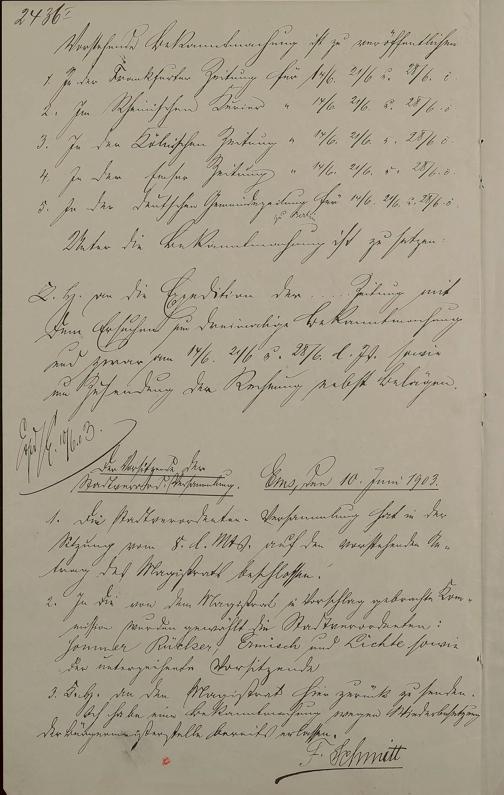 2436 I
Vorstehende Bekanntmachung ist zu veröffentlichen
1. In der Frankfurter Zeitung für 14/6. 21/6 u. 28/6. c.
2. Im Rheinischen Kurier " 14/6. 21/6 u. 28/6. c
3. In der Kölnischen Zeitung " 14/6. 21/6. u. 28/6 c.
4. In der Emser Zeitung " 14/6. 21/6. u. 28/6. c.
5. In der Deutschen Gemeindezeitung für 14/6. 21/6. u. 28/6. c.
zu Berlin
Unter die Bekanntmachung ist zu setzen:
U. an die Expedition der ..... Zeitung mit
dem Ersuchen um dreimalige Bekanntmachung
und zwar am 14/6. 21/6 u. 28/6. d. Js. sowie
um Zusendung der Rechnung nebst Belägen.
10/6.03.
Der Vorsitzende der
Stadtverord. Versammlung. Ems, den 10. Juni 1903.
1. Die Stadtverordneten-Versammlung hat in der
Sitzung vom 8. d. Mts. auf den vorstehenden An-
trag des Magistrats beschlossen.
2. In die von dem Magistrat in Vorschlag gebrachte Kom-
mission wurden gewählt die Stadtverordneten:
Hommer, Ermisch und Lichte sowie
der unterzeichnete Vorsitzende
3. U. an den Magistrat hier zurück zu senden.
Ich habe eine Bekanntmachung wegen Wiederbesetzung
der Bürgermeisterstelle bereits erlassen.
F. Schmitt